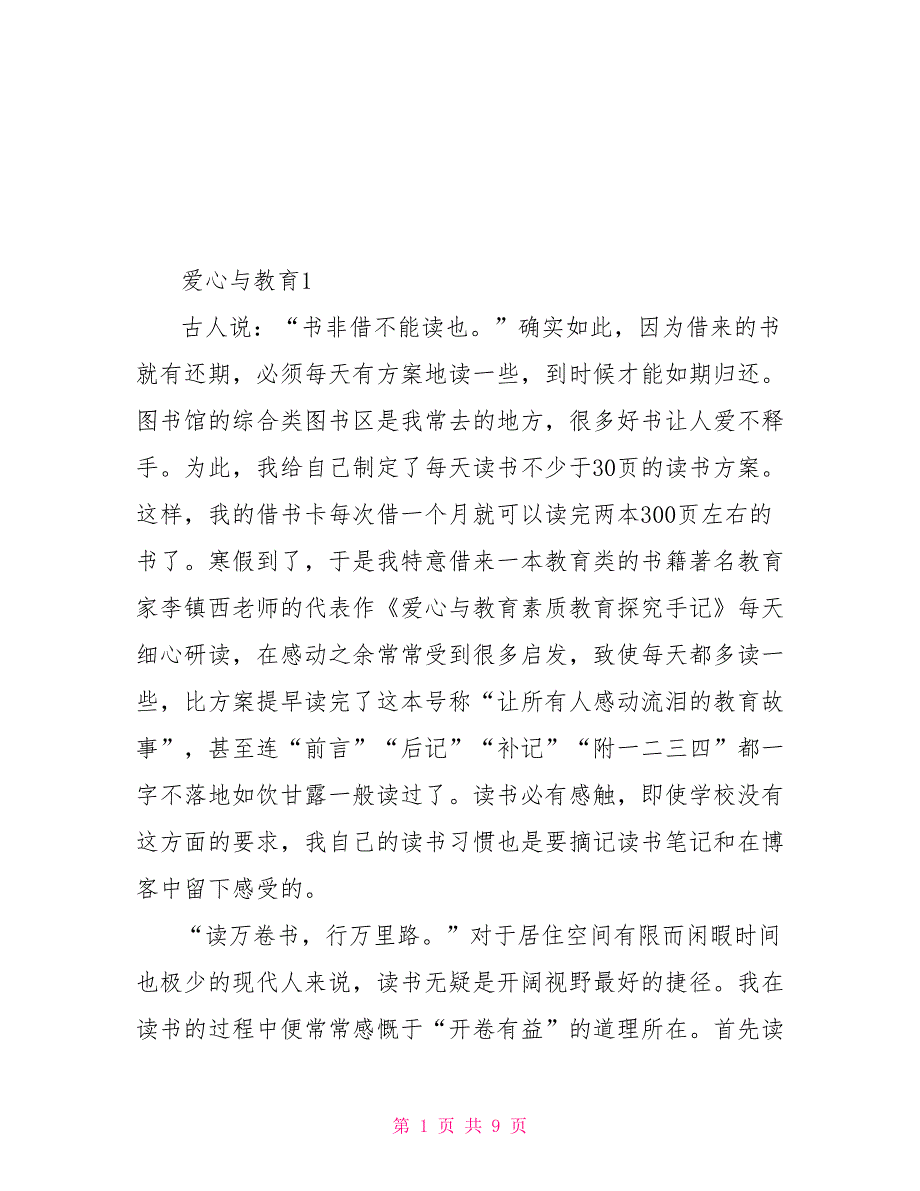 爱心与教育1
古人说：“书非借不能读也。”确实如此，因为借来的书
就有还期，必须每天有方案地读一些，到时候才能如期归还。
图书馆的综合类图书区是我常去的地方，很多好书让人爱不释
手。为此，我给自己制定了每天读书不少于30页的读书方案。
这样，我的借书卡每次借一个月就可以读完两本300页左右的
书了。寒假到了，于是我特意借来一本教育类的书籍著名教育
家李镇西老师的代表作《爱心与教育素质教育探究手记》每天
细心研读，在感动之余常常受到很多启发，致使每天都多读一
些，比方案提早读完了这本号称“让所有人感动流泪的教育故
事”，甚至连“前言”“后记”“补记”“附一二三四”都一
字不落地如饮甘露一般读过了。读书必有感触，即使学校没有
这方面的要求，我自己的读书习惯也是要摘记读书笔记和在博
客中留下感受的。
“读万卷书，行万里路。”对于居住空间有限而闲暇时间
也极少的现代人来说，读书无疑是开阔视野最好的捷径。我在
读书的过程中便常常感慨于“开卷有益”的道理所在。首先读
第 1 页 共 9 页